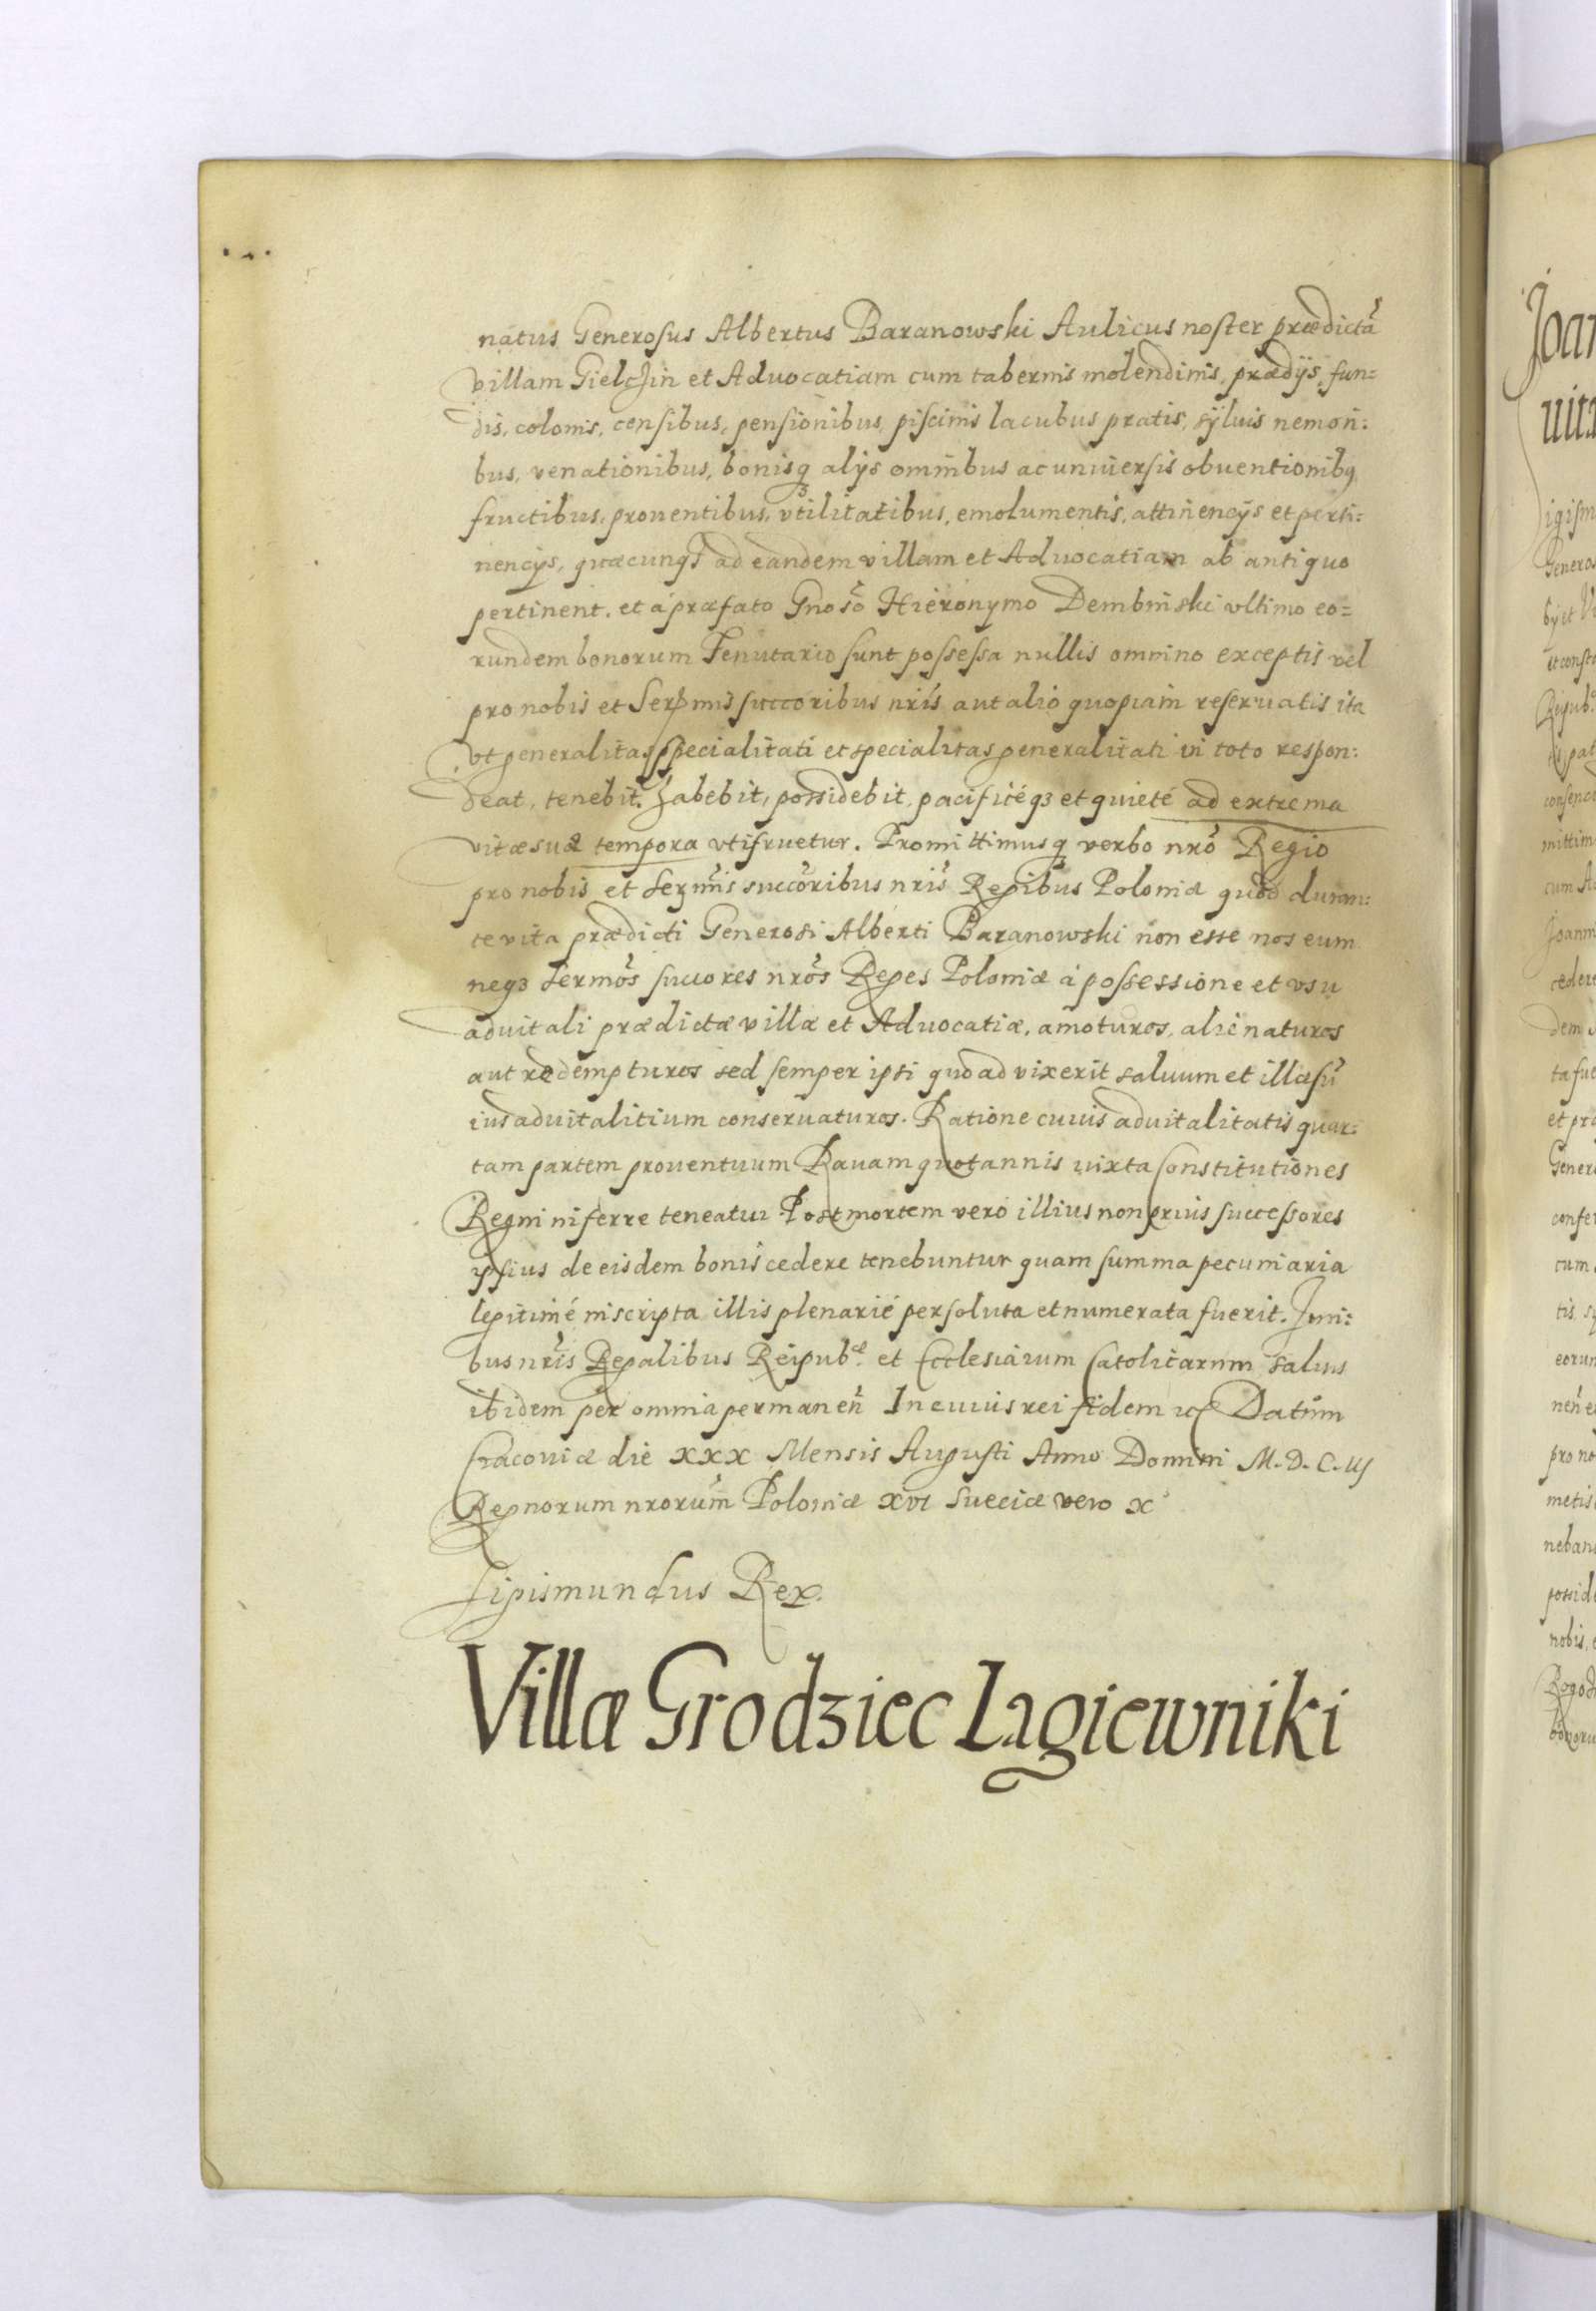 natus Generosus Albertus Baranowski Aulicus noster prædictã
villam Gielczin et Aduocatiam cum tabernis molendinis, prædijs, fun=
dis, colonis, censibus, pensionibus, piscinis lacubus pratis, syluis nemori:
bus, venationibus, bonisq alijs omnibus ac uniuersis obuentionibq
fructibus, prouentibus, vtilitatibus, emolumentis, attinencijs et perti=
nencijs, quæcunq3 ad eandem villam et Aduocatiam ab antiquo
pertinent. et á præfato Gnoso Hieronymo Dembinski vltimo eo=
rundem bonorum Tenutario sunt possessa nullis omnino exceptis vel
pro nobis et Sermis succoribus nris aut alio quopiam reseruatis ita
vt generalitas specialitati et specialitas generalitati in toto respon:
deat, tenebit, habebit, possidebit, pacificéq3 et quieté ad extrema
vitæ suæ tempora vtifruetur. Promittimusq verbo nro Regio
pro nobis et Sermis succoribus nris Regibus Poloniæ quod duran:
te vita prædicti Generosi Alberti Baranowski non esse nos eum
neq3 Sermos succores nros Reges Poloniæ á possessione et vsu
aduitali prædictæ villæ et Aduocatiæ, amoturos, alienaturos
aut redempturos sed semper ipsi quoad vixerit saluum et illæsũ
ius aduitalitium conseruaturos. Ratione cuius aduitalitatis quar:
tam partem prouentuum Rauam quotannis iuxta Constitutiones
Regni inferre teneatur Post mortem vero illius non prius successores
ipsius de eisdem bonis cedere tenebuntur quam summa pecuniaria
legitimé inscripta illis plenarié persoluta et numerata fuerit. Juri:
bus nris Regalibus Reipubæ. et Ecclesiarum Catolicarum saluis
ibidem per omnia permanen̄ In cuius rei fidem Datum
Cracouiæ die xxx Mensis Augusti Anno Domini M.D.C.iij
Regnorum nrorum Poloniæ xvi Sueciæ vero x
Sigismundus Rex.
Villæ Grodziec Łagiewniki